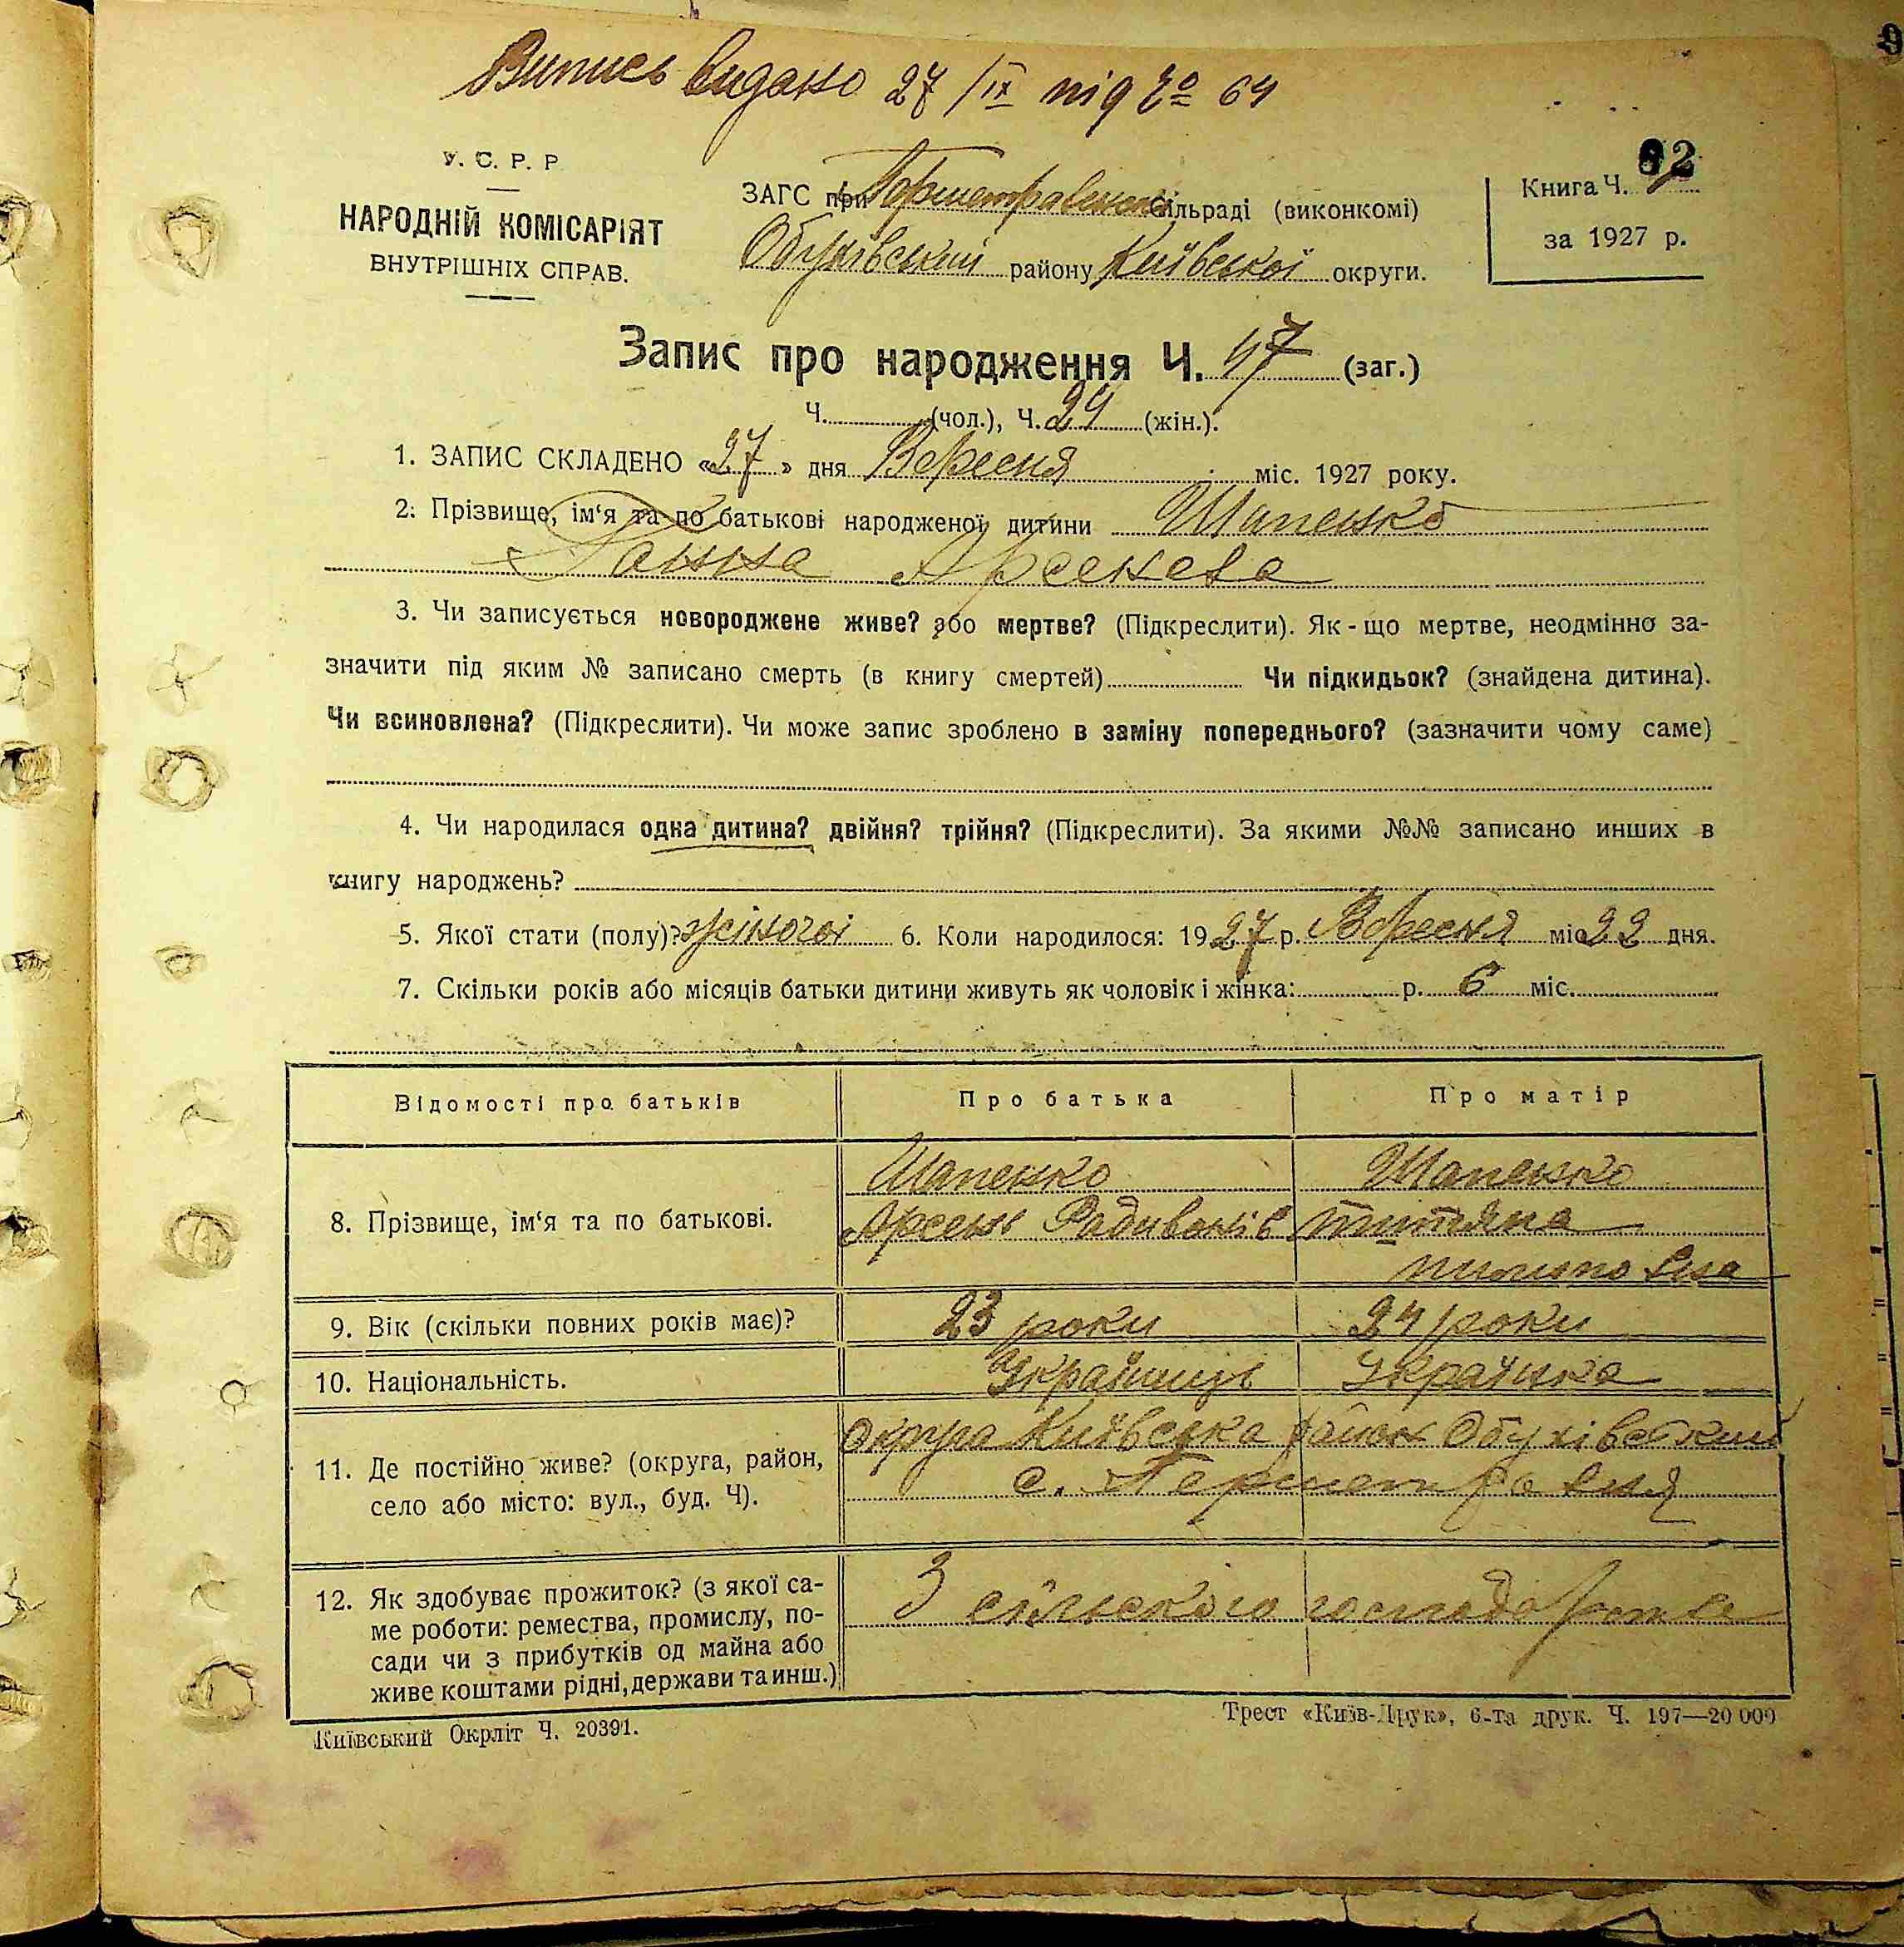 Випись видано 27/IX під № 64
92
У. С. Р. Р
НАРОДНІЙ КОМІСАРІЯТ
ВНУТРІШНІХ СПРАВ.
ЗАГС при Першетравенській сільраді (виконкомі)
Обухівський району Київської округи.
Книга Ч.
за 1927 р.
Запис про народження Ч. 47 (заг.)
Ч. (чол.), Ч. 24 (жін.).
1. ЗАПИС СКЛАДЕНО «27» дня Вересня міс. 1927 року.
2. Прізвище, ім‘я та по батькові народженої дитини Шапенко
Ганна Арсенева
3. Чи записується новороджене живе? або мертве? (Підкреслити). Як-що мертве, неодмінно за-
значити під яким № записано смерть (в книгу смертей) Чи підкидьок? (знайдена дитина).
Чи всиновлена? (Підкреслити). Чи може запис зроблено в заміну попереднього? (зазначити чому саме)
4. Чи народилася одна дитина? двійня? трійня? (Підкреслити). За якими №№ записано инших в
книгу народжень?
5. Якої стати (полу)? жіночої 6. Коли народилося: 1927 р. Вересня міс 22 дня.
7. Скільки років або місяців батьки дитини живуть як чоловік і жінка: р. 6 міс.
Відомості про батьків Про батька Про матір
Шапенко Шапенко
8. Прізвище, ім‘я та по батькові. Арсень Радивонів Титяна
Пилиповна
9. Вік (скільки повних років має)? 23 роки 24 роки
10. Національність. Українець Українка
Округа Київська район Обухівський
11. Де постійно живе? (округа, район,
село або місто: вул., буд. Ч). с. Першетравня
12. Як здобуває прожиток? (з якої са-
ме роботи: ремества, промислу, по-
сади чи з прибутків од майна або
живе коштами рідні, держави та инш.)
З сільського господарства
Київський Окрліт Ч. 20391.
Трест «Київ-Друк», 6-та друк. Ч. 197—20 000